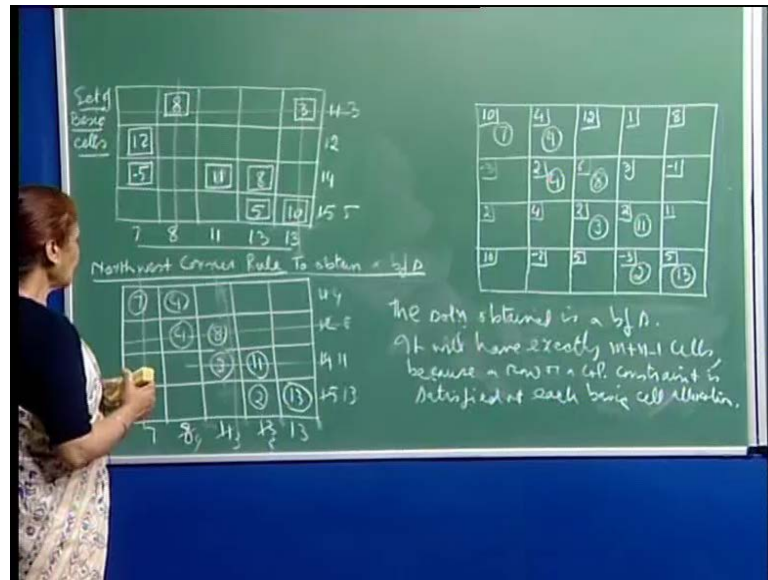 Set of
Basic
cells
8 3 11 3
12 12
-5 11 8 14
5 10 15 5
7 8 11 13 13
Northwest Corner Rule To obtain a bfs
7 4 11 4
4 8 12 8
3 11 14 11
2 13 15 13
7 8 4 11 3 13 2 13
10 7 4 4 12 1 8
-3 2 4 6 8 3 -1
2 4 2 3 2 11 11
10 -2 5 -3 2 5 13
The soln obtained is a bfs.
It will have exactly m+n-1 cells,
because a row or a col. constraint is
satisfied at each basic cell allocation.